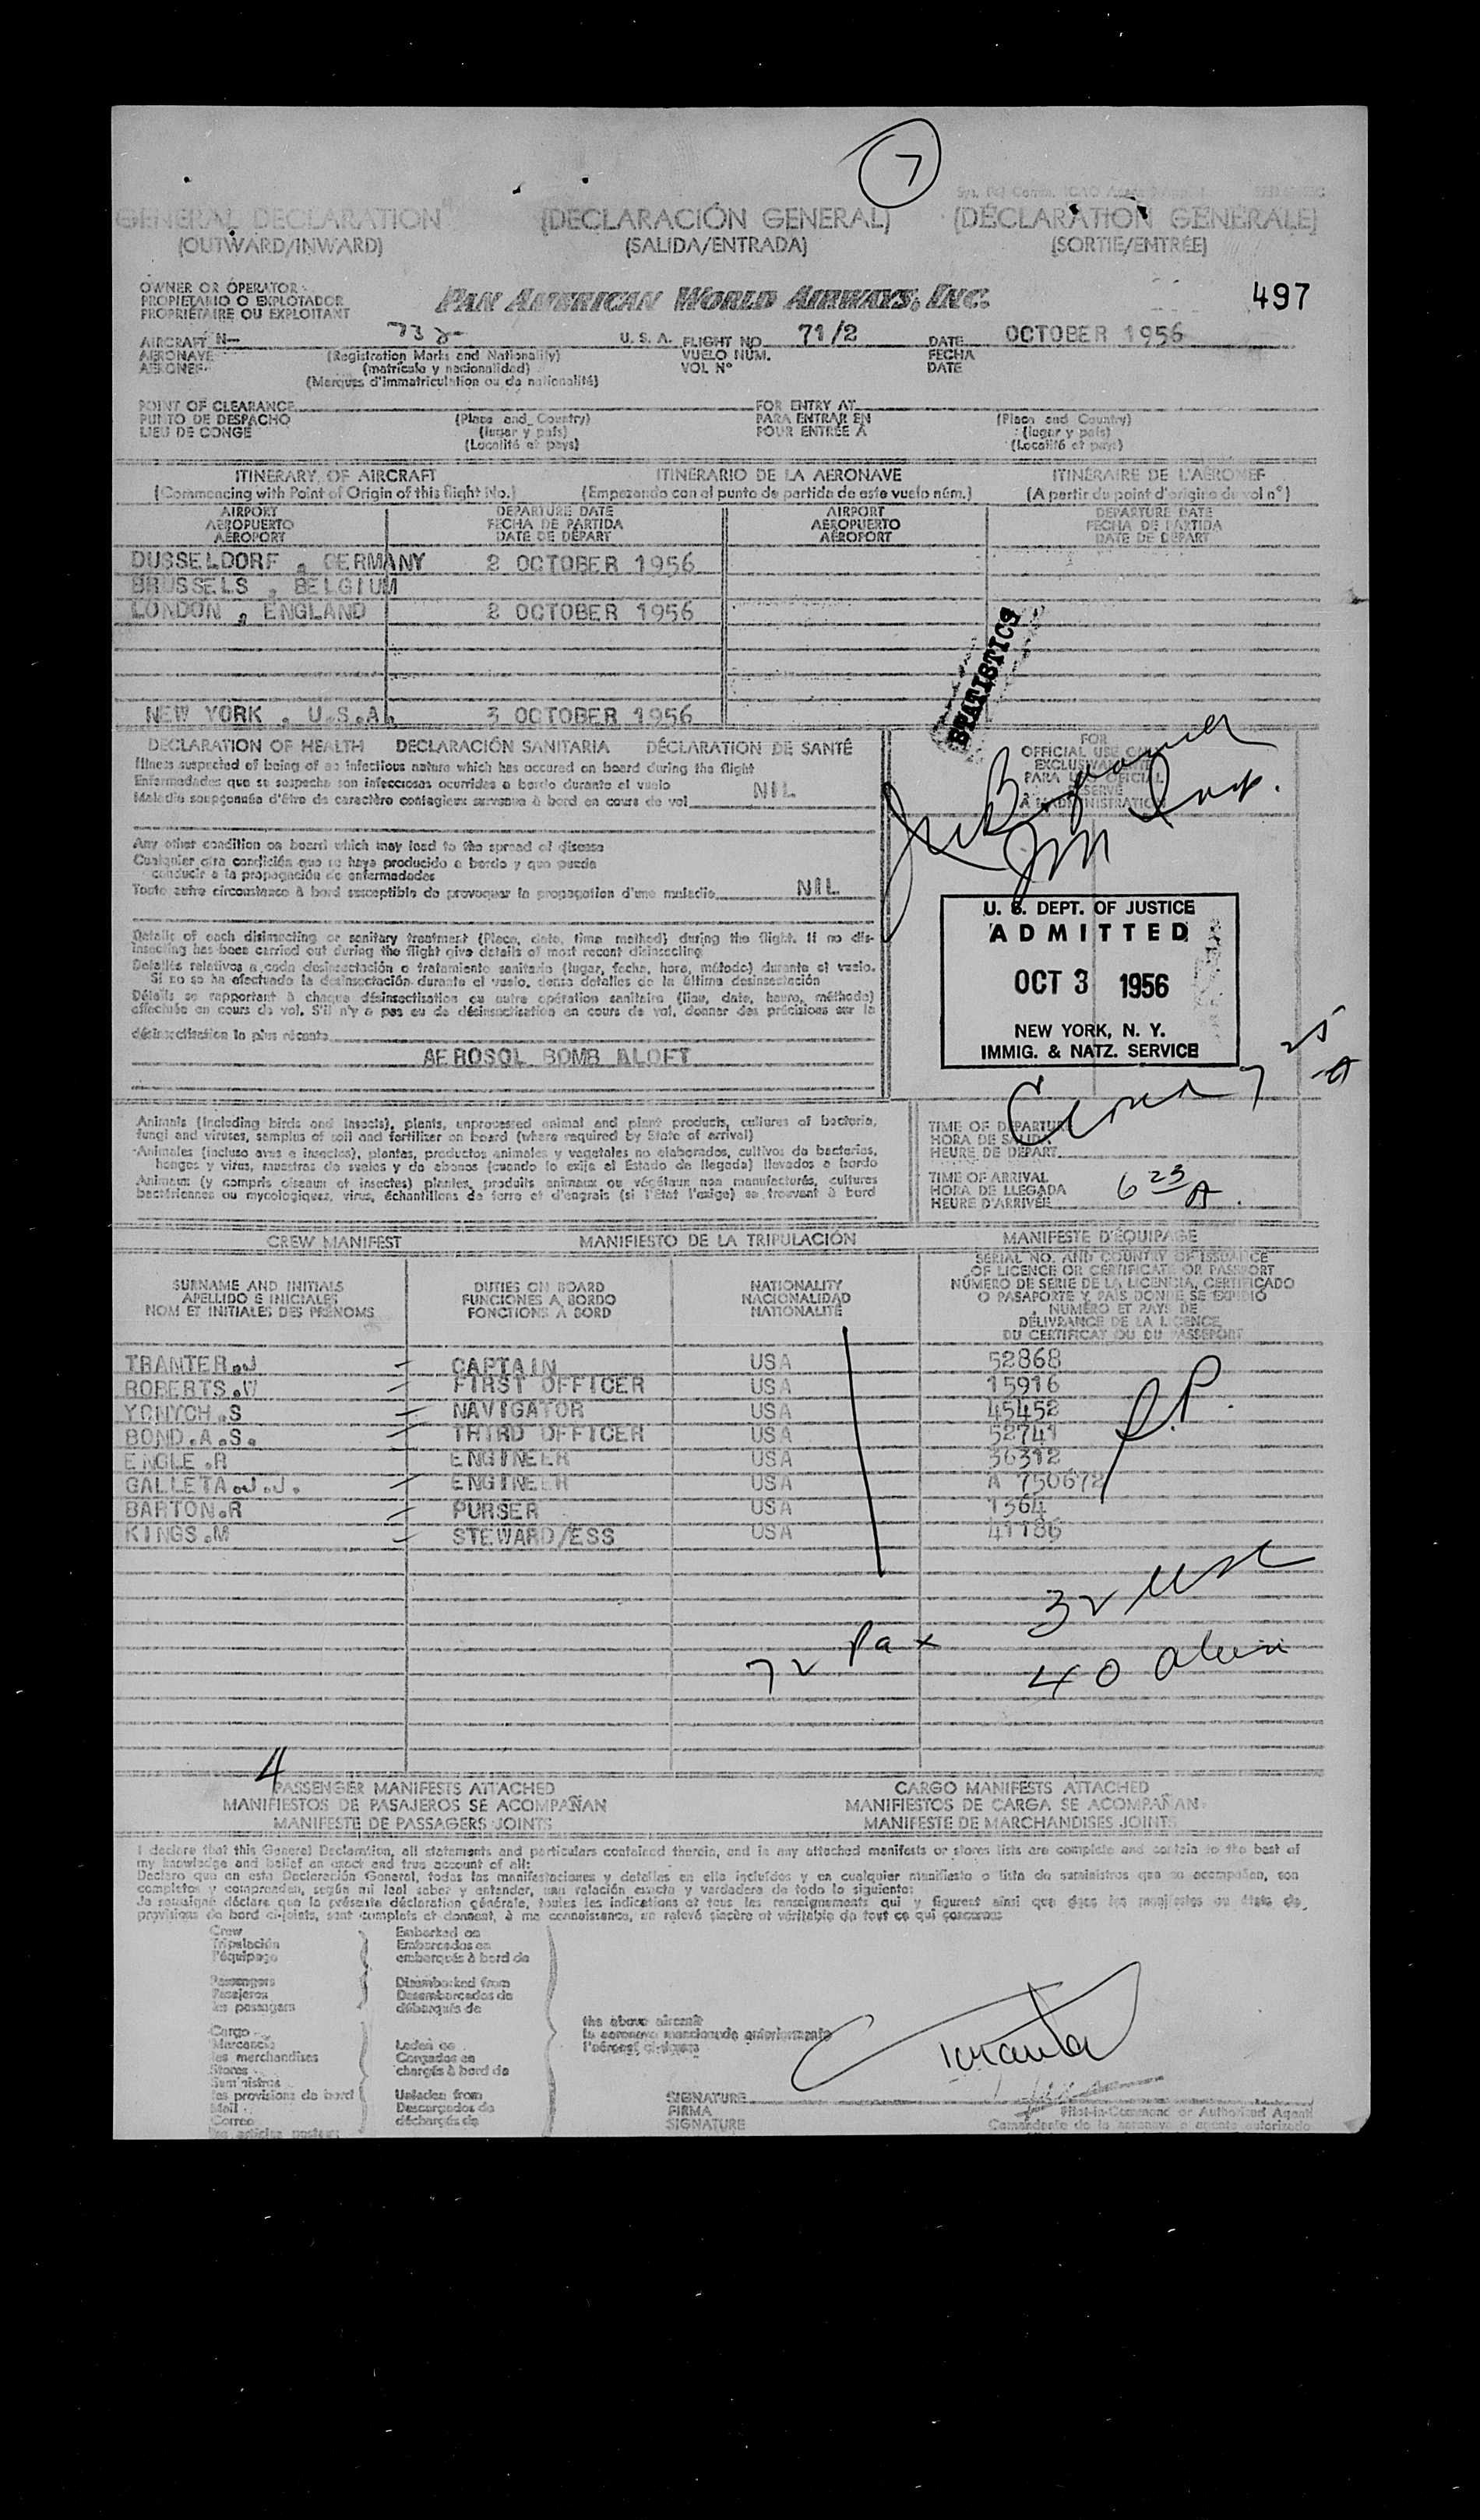 7
GENERAL DECLARATION (DECLARACIÓN GENERAL) (DÉCLARATION GÉNÉRALE)
(OUTWARD/INWARD) (SALIDA/ENTRADA) (SORTIE/ENTRÉE)
OWNER OR OPERATOR
PROPIETARIO O EXPLOTADOR
PROPRIÉTAIRE OU EXPLOITANT
PAN AMERICAN WORLD AIRWAYS, INC.
497
AIRCRAFT N— U.S.A. FLIGHT NO. 71/2 DATE OCTOBER 1956
AERONAVE (Registration Marks and Nationality) VUELO NÚM. FECHA
AERONEF (matrícula y nacionalidad) VOL Nº DATE
(Marques d'immatriculation ou de nationalité)
POINT OF CLEARANCE FOR ENTRY AT
PUNTO DE DESPACHO (Place and Country) PARA ENTRAR EN (Place and Country)
LIEU DE CONGÉ (lugar y país) POUR ENTRÉE À (lugar y país)
(Localité et pays) (Localité et pays)
ITINERARY OF AIRCRAFT ITINERARIO DE LA AERONAVE ITINÉRAIRE DE L'AÉRONEF
(Commencing with Point of Origin of this flight No.) (Empezando con el punto de partida de este vuelo núm.) (A partir du point d'origine du vol nº)
AIRPORT DEPARTURE DATE AIRPORT DEPARTURE DATE
AEROPUERTO FECHA DE PARTIDA AEROPUERTO FECHA DE PARTIDA
AÉROPORT DATE DE DÉPART AÉROPORT DATE DE DÉPART
DUSSELDORF , GERMANY 2 OCTOBER 1956
BRUSSELS , BELGIUM
LONDON , ENGLAND 2 OCTOBER 1956
STATISTICS
NEW YORK , U.S.A. 3 OCTOBER 1956
DECLARATION OF HEALTH DECLARACIÓN SANITARIA DÉCLARATION DE SANTÉ
Illness suspected of being of an infectious nature which has occured on board during the flight
Enfermedades que se sospecha son infecciosas ocurridas a bordo durante el vuelo
Maladie soupçonnée d'être de caractère contagieux survenue à bord en cours de vol NIL
FOR
OFFICIAL USE ONLY
EXCLUSIVAMENTE
PARA USO OFICIAL
RÉSERVÉ
À L'ADMINISTRATION
Insp.
Any other condition on board which may lead to the spread of disease
Cualquier otra condición que se haya producido a bordo y que pueda
conducir a la propagación de enfermedades
Toute autre circonstance à bord susceptible de provoquer la propagation d'une maladie NIL
Details of each disinsecting or sanitary treatment (Place, date, time method) during the flight. If no dis-
insecting has been carried out during the flight give details of most recent disinsecting
Detalles relativos a cada desinsectación o tratamiento sanitario (lugar, fecha, hora, método) durante el vuelo.
Si no se ha efectuado la desinsectación durante el vuelo, dense detalles de la última desinsectación
Détails se rapportant à chaque désinsectisation ou autre opération sanitaire (lieu, date, heure, méthode)
effectuée en cours de vol. S'il n'y a pas eu de désinsectisation en cours de vol, donner des précisions sur la
désinsectisation la plus récente
AEROSOL BOMB ALOFT
U. S. DEPT. OF JUSTICE
ADMITTED
OCT 3 1956
NEW YORK, N. Y.
IMMIG. & NATZ. SERVICE
7 25 A
Animals (including birds and insects), plants, unprocessed animal and plant products, cultures of bacteria,
fungi and viruses, samples of soil and fertilizer on board (where required by State of arrival)
Animales (incluso aves e insectos), plantas, productos animales y vegetales no elaborados, cultivos de bacterias,
hongos y virus, muestras de suelos y de abonos (cuando lo exija el Estado de llegada) llevados a bordo
Animaux (y compris oiseaux et insectes) plantes, produits animaux ou végétaux non manufacturés, cultures
bactériennes ou mycologiques, virus, échantillons de terre et d'engrais (si l'État l'exige) se trouvant à bord
TIME OF DEPARTURE
HORA DE SALIDA
HEURE DE DÉPART
TIME OF ARRIVAL
HORA DE LLEGADA
HEURE D'ARRIVÉE 6 23 A
CREW MANIFEST MANIFIESTO DE LA TRIPULACIÓN MANIFESTE D'ÉQUIPAGE
SURNAME AND INITIALS
APELLIDO E INICIALES
NOM ET INITIALES DES PRÉNOMS
DUTIES ON BOARD
FUNCIONES A BORDO
FONCTIONS À BORD
NATIONALITY
NACIONALIDAD
NATIONALITÉ
SERIAL NO. AND COUNTRY OF ISSUANCE
OF LICENCE OR CERTIFICATE OR PASSPORT
NÚMERO DE SERIE DE LA LICENCIA, CERTIFICADO
O PASAPORTE Y PAÍS DONDE SE EXPIDIÓ
NUMÉRO ET PAYS DE
DÉLIVRANCE DE LA LICENCE,
DU CERTIFICAT OU DU PASSEPORT
TRANTER.J CAPTAIN USA 52868
ROBERTS.W FIRST OFFICER USA 15916
YONYCH.S NAVIGATOR USA 45452
BOND.A.S. THIRD OFFICER USA 52741
ENGLE.R ENGINEER USA 36312
GALLETA.J.J. ENGINEER USA A 750672
BARTON.R PURSER USA 1364
KINGS.M STEWARD/ESS USA 41186
P.P.
32 USC
72 Pax 40 alien
4
PASSENGER MANIFESTS ATTACHED CARGO MANIFESTS ATTACHED
MANIFIESTOS DE PASAJEROS SE ACOMPAÑAN MANIFIESTOS DE CARGA SE ACOMPAÑAN
MANIFESTE DE PASSAGERS JOINTS MANIFESTE DE MARCHANDISES JOINTS
I declare that this General Declaration, all statements and particulars contained therein, and in any attached manifests or stores lists are complete and contain to the best of
my knowledge and belief an exact and true account of all:
Declaro que en esta Declaración General, todas las manifestaciones y detalles en ella incluídos y en cualquier manifiesto o lista de suministros que se acompañan, son
completos y comprenden, según mi leal saber y entender, una relación exacta y verdadera de todo lo siguiente:
Je soussigné déclare que la présente déclaration générale, toutes les indications et tous les renseignements qui y figurent ainsi que dans les manifestes ou états de
provisions de bord ci-joints, sont complets et donnent, à ma connaissance, un relevé sincère et véritable de tout ce qui concerne:
Crew
Tripulación
l'équipage
Embarked on
Embarcados en
embarqués à bord de
Passengers
Pasajeros
les passagers
Disembarked from
Desembarcados de
débarqués de
Cargo
Mercancía
les merchandises
Stores
Suministros
les provisions de bord
Mail
Correo
Laden on
Cargados en
chargés à bord de
Unladen from
Descargados de
déchargés de
the above aircraft
la aeronave mencionada anteriormente
l'aéronef ci-dessus
SIGNATURE
FIRMA
SIGNATURE
Tranter
Pilot-in-Command or Authorized Agent
Comandante de la aeronave o agente autorizado